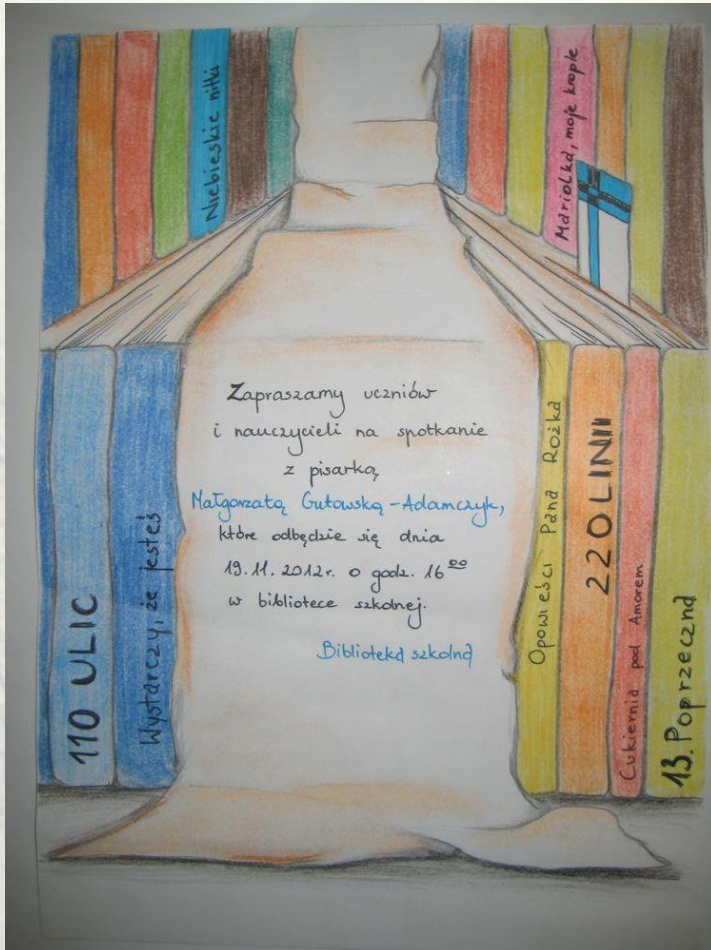 Niebieskie nitki
Mariolka, moje krople
Zapraszamy uczniów
i nauczycieli na spotkanie
z pisarką
Małgorzatą Gutowską-Adamczyk,
które odbędzie się dnia
19.11.2012r. o godz. 16⁰⁰
w bibliotece szkolnej.
Biblioteka szkolna
110 ULIC
Wystarczy, że jesteś
Opowieści Pana Rożka
220 LINII
Cukiernia pod Amorem
13. Poprzeczna